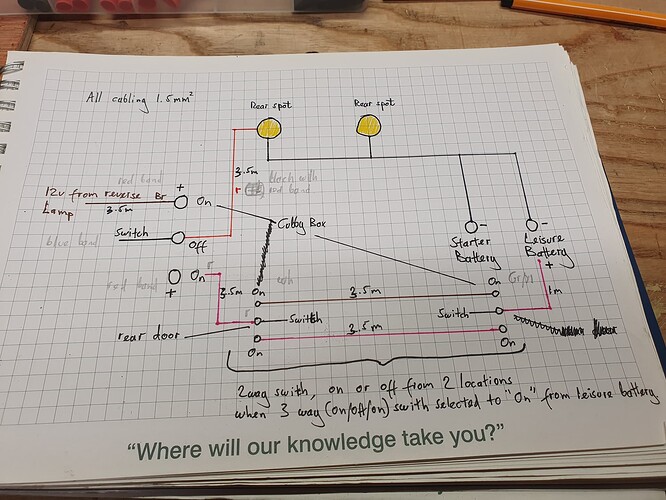 All cabling 1.5mm²
Rear spot
Rear spot
3.5m
r
black with
red band
red band
12v from reverse Br
Lamp
3.5m
+
On
Switch
Off
blue band
Cubby Box
Starter
Battery
-
Leisure
Battery
-
+
On
r
red band
+
3.5m
On
3.5m
On
Gr/
1m
r
Switch
Switch
rear door
3.5m
On
On
2way swith, on or off from 2 locations
when 3 way (on/off/on) swith selected to "On" from leisure battery
"Where will our knowledge take you?"